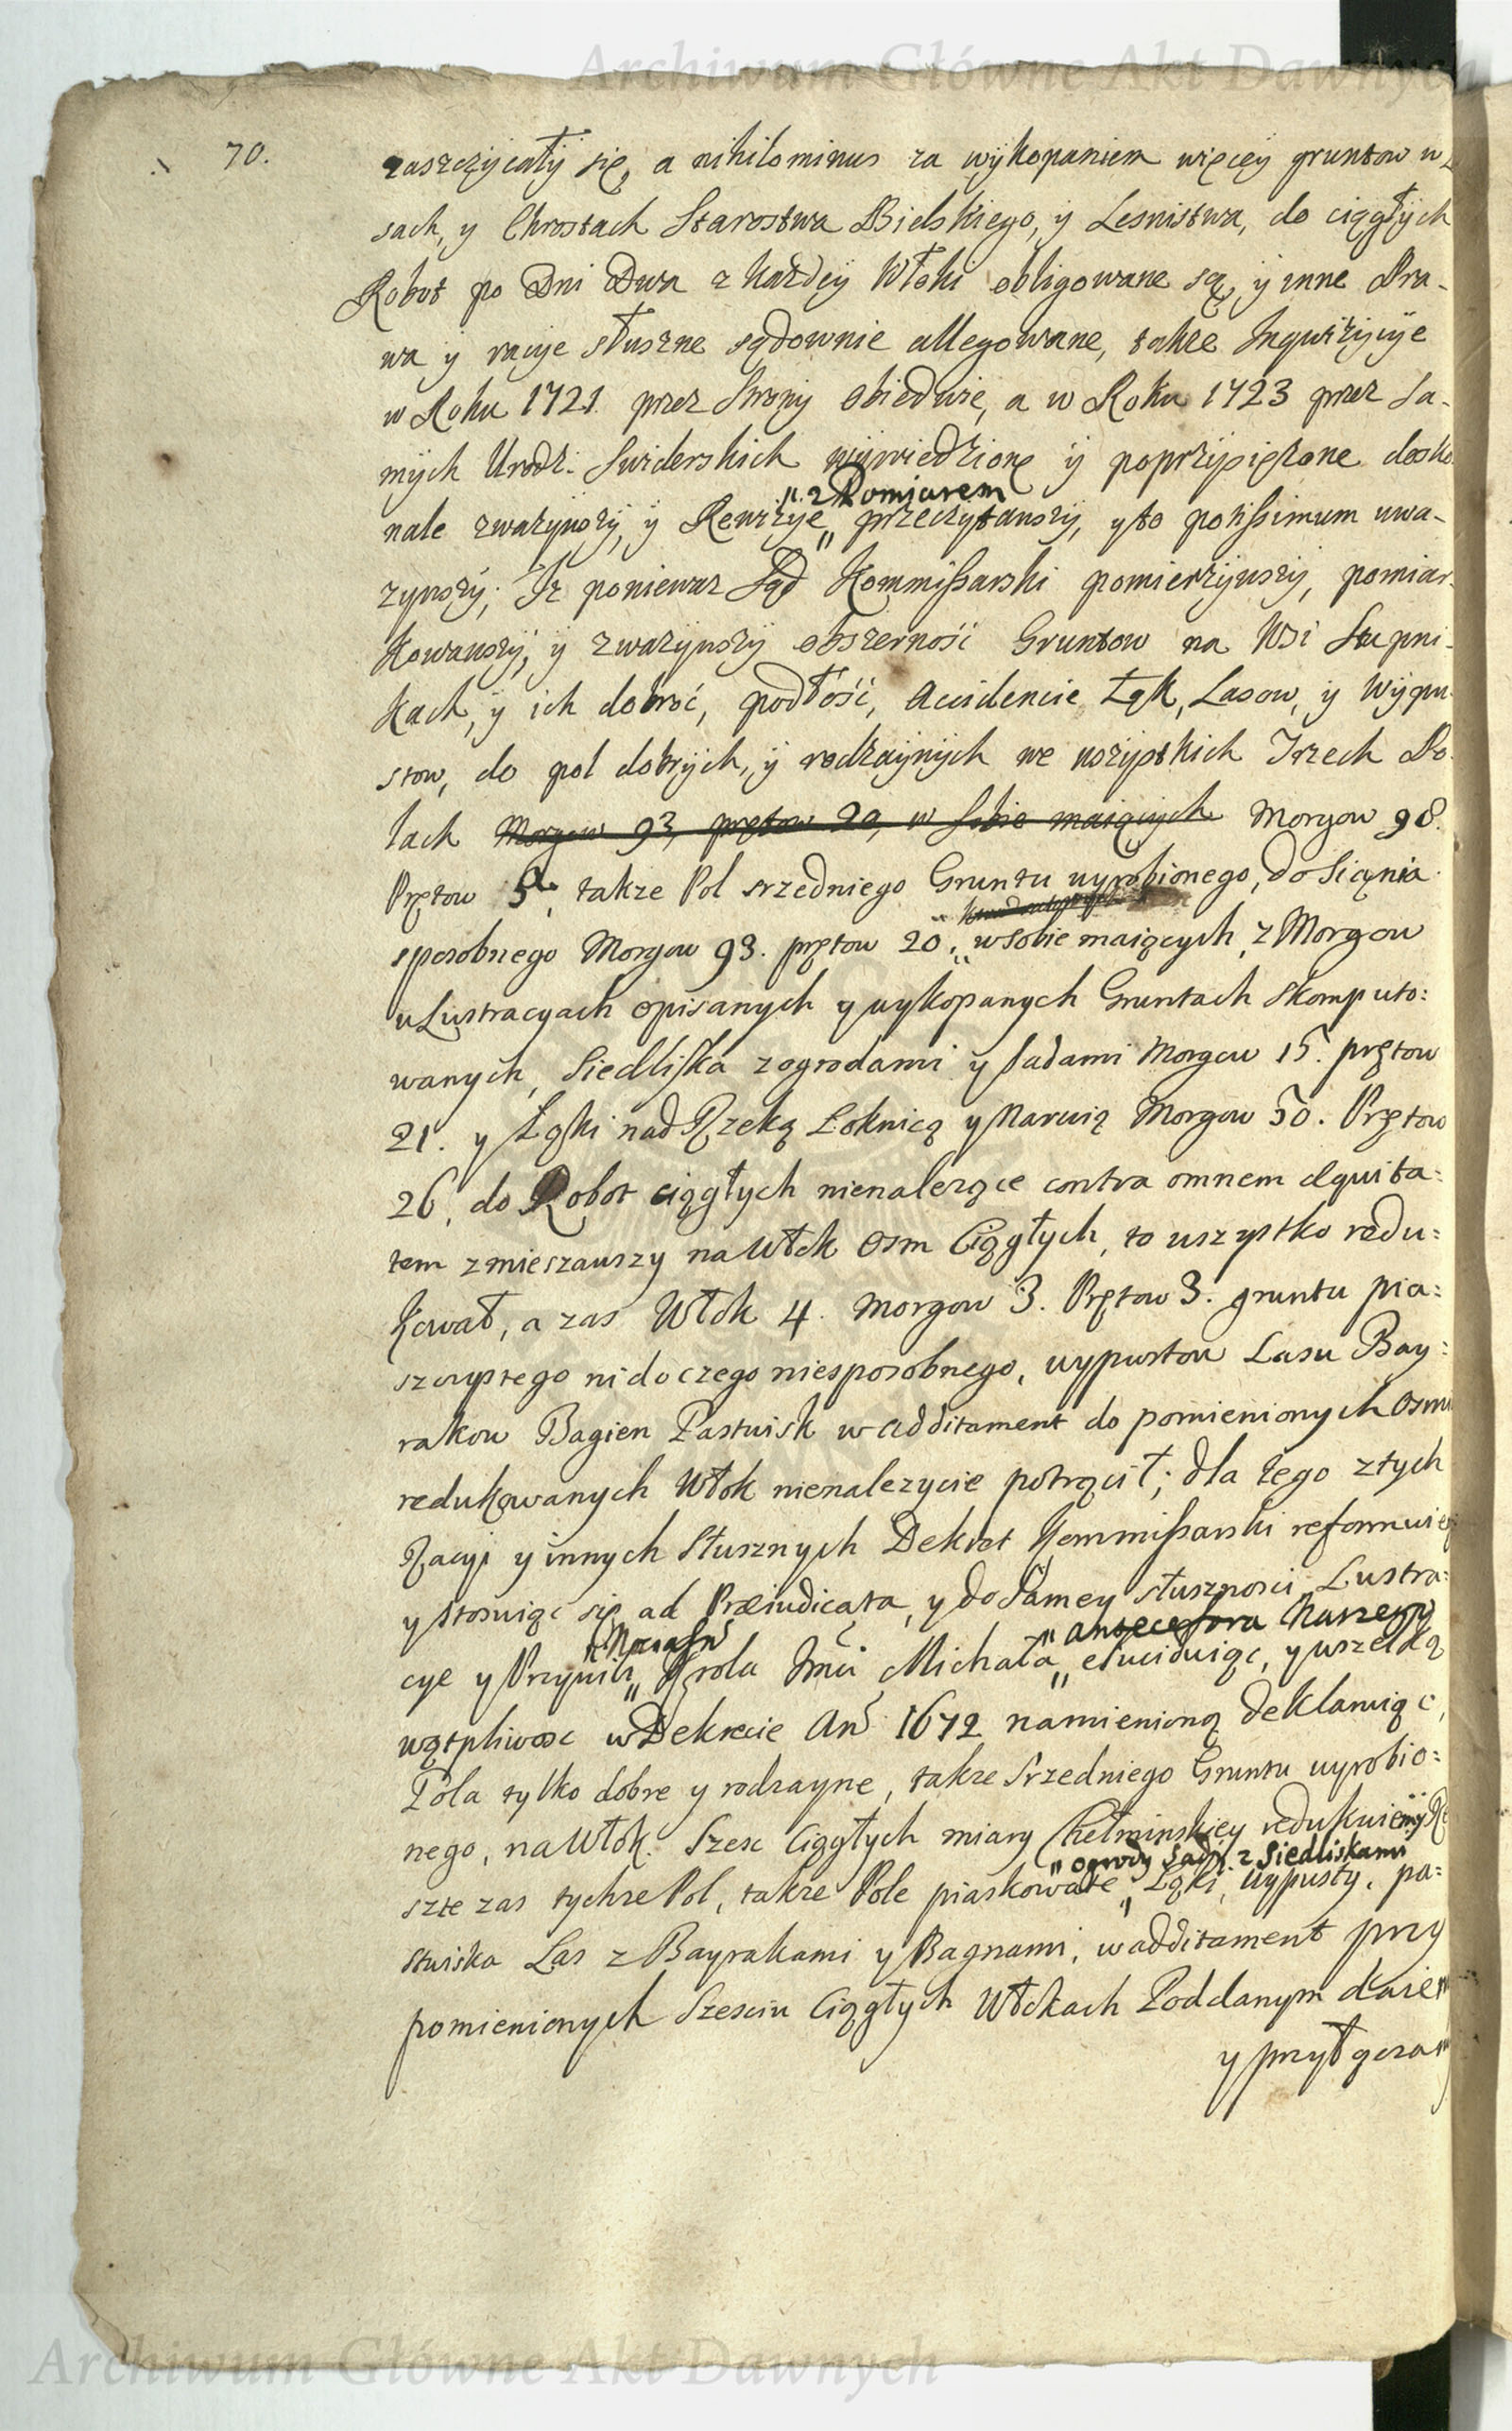 Archiwum Główne Akt Dawnych
70.
zaszczycały się, a nihilominus za wykopaniem więcey gruntow w La-
sach, y Chrostach Starostwa Bielskiego, y Lesnistwa, do ciągłych
Robot po Dni Dwa z każdey Włoki obligowane są, y inne Pra-
wa y racye słuszne sądownie allegowane, także Inqwizycye
w Roku 1721. przez Strony obiedwie, a w Roku 1723 przez Sa-
mych Urodz: Swiderskich wywiedzione y poprzysiężone dosko
„ z Pomiarem
nale zwazywszy, y Rewizye „ przeczytawszy, y to potissimum uwa-
zywszy; Iż poniewaz Sąd Kommissarski pomierzywszy, pomiar-
kowawszy, y zwazywszy obszerność Gruntow na Wsi Stupni-
kach, y ich dobroć, podłość, Accidencie Łąk, Lasow, y Wypu-
stow, do pol dobrych, y rodzaynych we wszystkich Trzech Po-
lach Morgow 93, prętow 20, w Sobie maiących Morgow 98.
Prętow 5. także Pol srzedniego Gruntu wyrobionego, do Siąnia
sposobnego Morgow 93. prętow 20. „ w Sobie maiących, z Morgow
w Lustracyach opisanych y wykopanych Gruntach skomputo:
wanych, Siedliska z ogrodami y Sadami Morgow 15. prętow
21. y Łąki nad Rzeką Łoknicą y Narwią Morgow 50. Prętow
26, do Robot ciągłych nienależące contra omnem Æquita:
tem zmieszawszy na Włok Osm Ciągłych, to wszystko redu:
kował, a zas Włok 4. Morgow 3. Prętow 3. gruntu pia:
szczystego ni do czego niesposobnego, wypustow Lasu Bay:
rakow Bagien Pastwisk w additament do pomienionych Osmi
redukowanych Włok nienależycie potrącił; dla tego z tych
Racyi y innych Słusznych Dekret Kommissarski reformuiąc
y stosuiąc się ad Præiudicata, y do Samey słusznosci, Lustra:
„ antecessora Naszego
cye y Przywil: „ Krola Jmci Michała „ elucidując, y wszelką
wątpliwosc w Dekrecie An̄o 1672 namienioną deklaruiąc,
Pola tylko dobre y rodzayne, także Srzedniego Gruntu wyrobio:
nego, na Włok Szesc Ciągłych miary Chełminskiey redukuiemy Re
„ ogrody Sady z Siedliskami
szte zas tychże Pol, także Pole piaskowate „ Łąki, wypusty, pa:
stwiska Las z Bayrakami y Bagnami, w additament przy
pomienionych Szesciu Ciągłych Włokach Poddanym daiem
y przyłącza
Archiwum Główne Akt Dawnych